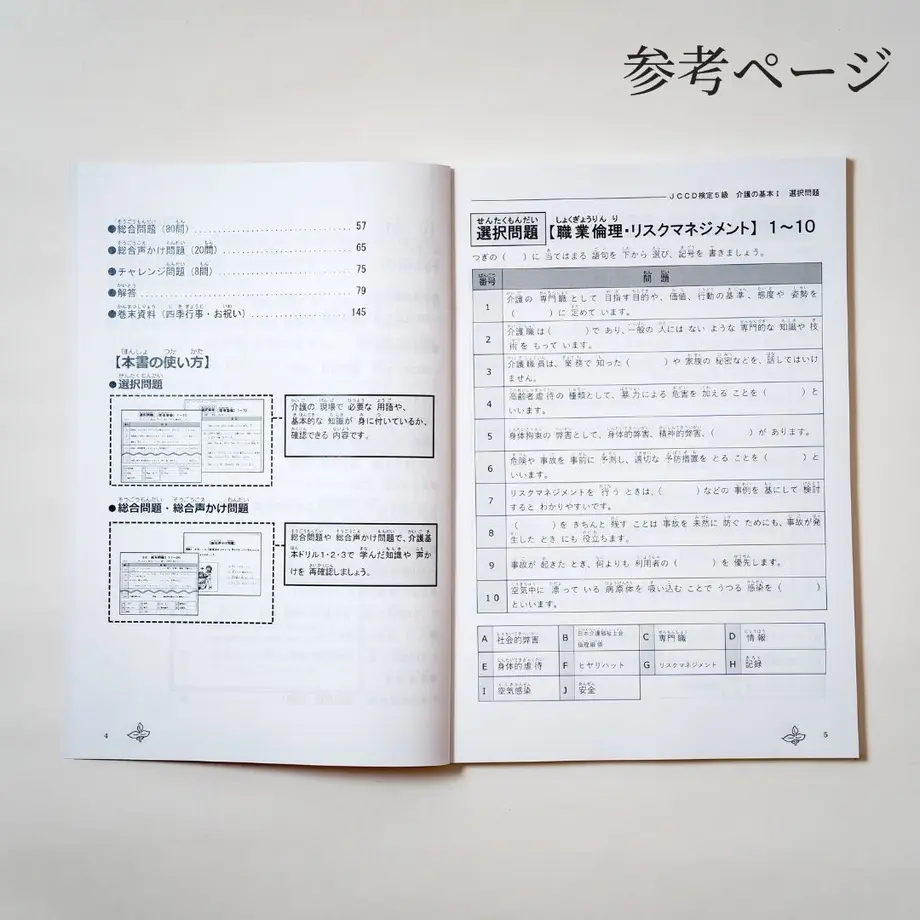 参考ページ
●総合問題（80問） 57
●総合声かけ問題（20問） 65
●チャレンジ問題（8問） 75
●解答 79
●巻末資料（四季行事・お祝い） 145
【本書の使い方】
●選択問題
介護の 現場で 必要な 用語や、
基本的な 知識が 身に付いているか、
確認できる 内容です。
●総合問題・総合声かけ問題
総合問題や 総合声かけ問題で、介護基
本ドリル1・2・3で 学んだ知識や 声か
けを 再確認しましょう。
4
JCCD検定5級 介護の基本Ⅰ 選択問題
選択問題【職業倫理・リスクマネジメント】 1～10
つぎの（ ）に 当てはまる 語句を 下から 選び、記号を 書きましょう。
番号 問題
1 介護の 専門職として 目指す目的や、価値、行動の基準、態度や 姿勢を
（ ）に 定めて います。
2 介護職は（ ）で あり、一般の 人には ない ような 専門的な 知識や 技
術を もって います。
3 介護職員は、業務で 知った（ ）や 家族の 秘密などを、話してはいけ
ません。
4 高齢者虐待の 種類として、暴力による 危害を 加える ことを（ ）と
いいます。
5 身体拘束の 弊害として、身体的弊害、精神的弊害、（ ）が あります。
6 危険や 事故を 事前に 予測し、適切な 予防措置を とる ことを（ ）と
いいます。
7 リスクマネジメントを 行う ときは、（ ）などの 事例を 基にして 検討
すると わかりやすいです。
8 （ ）を きちんと 残す ことは 事故を 未然に 防ぐ ためにも、事故が発
生した とき にも 役立ちます。
9 事故が 起きた とき、何よりも 利用者の（ ）を 優先します。
10 空気中に 漂って いる 病原体を 吸い込む ことで うつる 感染を（ ）
といいます。
A 社会的弊害 B 日本介護福祉士会倫理綱領 C 専門職 D 情報
E 身体的虐待 F ヒヤリハット G リスクマネジメント H 記録
I 空気感染 J 安全
5